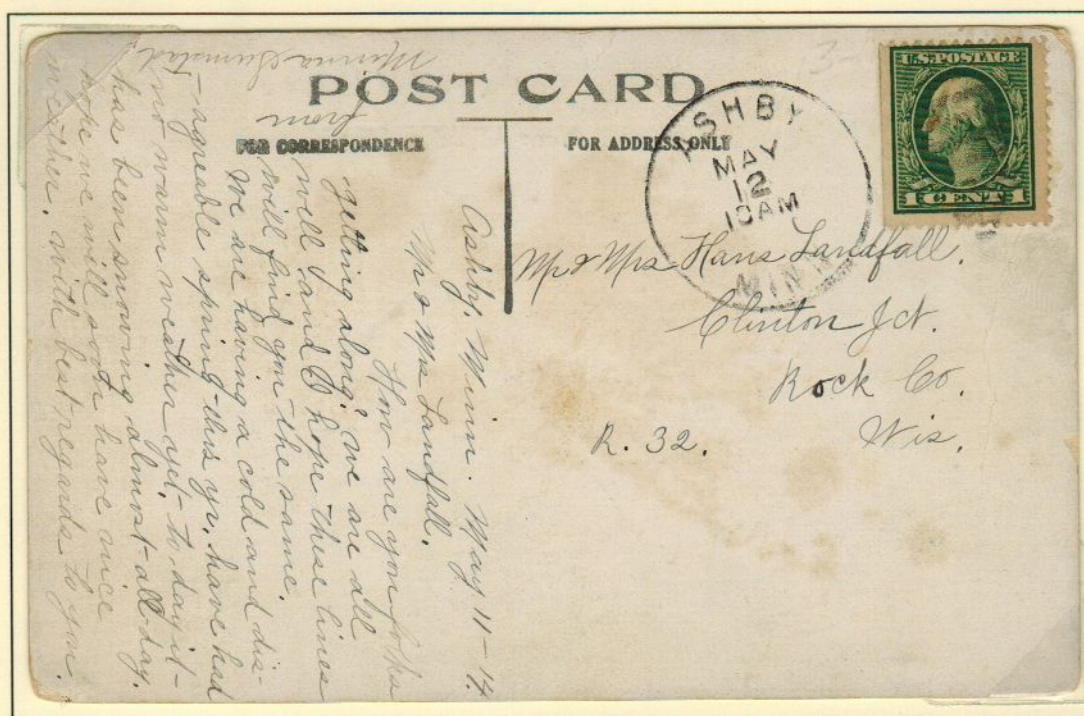 POST CARD
FOR CORRESPONDENCE
FOR ADDRESS ONLY
ASHBY
MAY
12
10AM
MINN
U.S. POSTAGE
1 CENT 1
Mr & Mrs Hans Landfall.
Clinton Jct.
Rock Co.
R. 32. Wis.
Ashby, Minn. May 11-14.
Mr & Mrs Landfall.
How are you folks
getting along? we are all
well, and I hope these lines
will find you the same.
We are having a cold and dis-
-agreable spring this yr, have had
no warm weather yet, to-day it
has been snowing almost all day.
hope we will soon have nice
weather. with best regards to you.
from
Minna